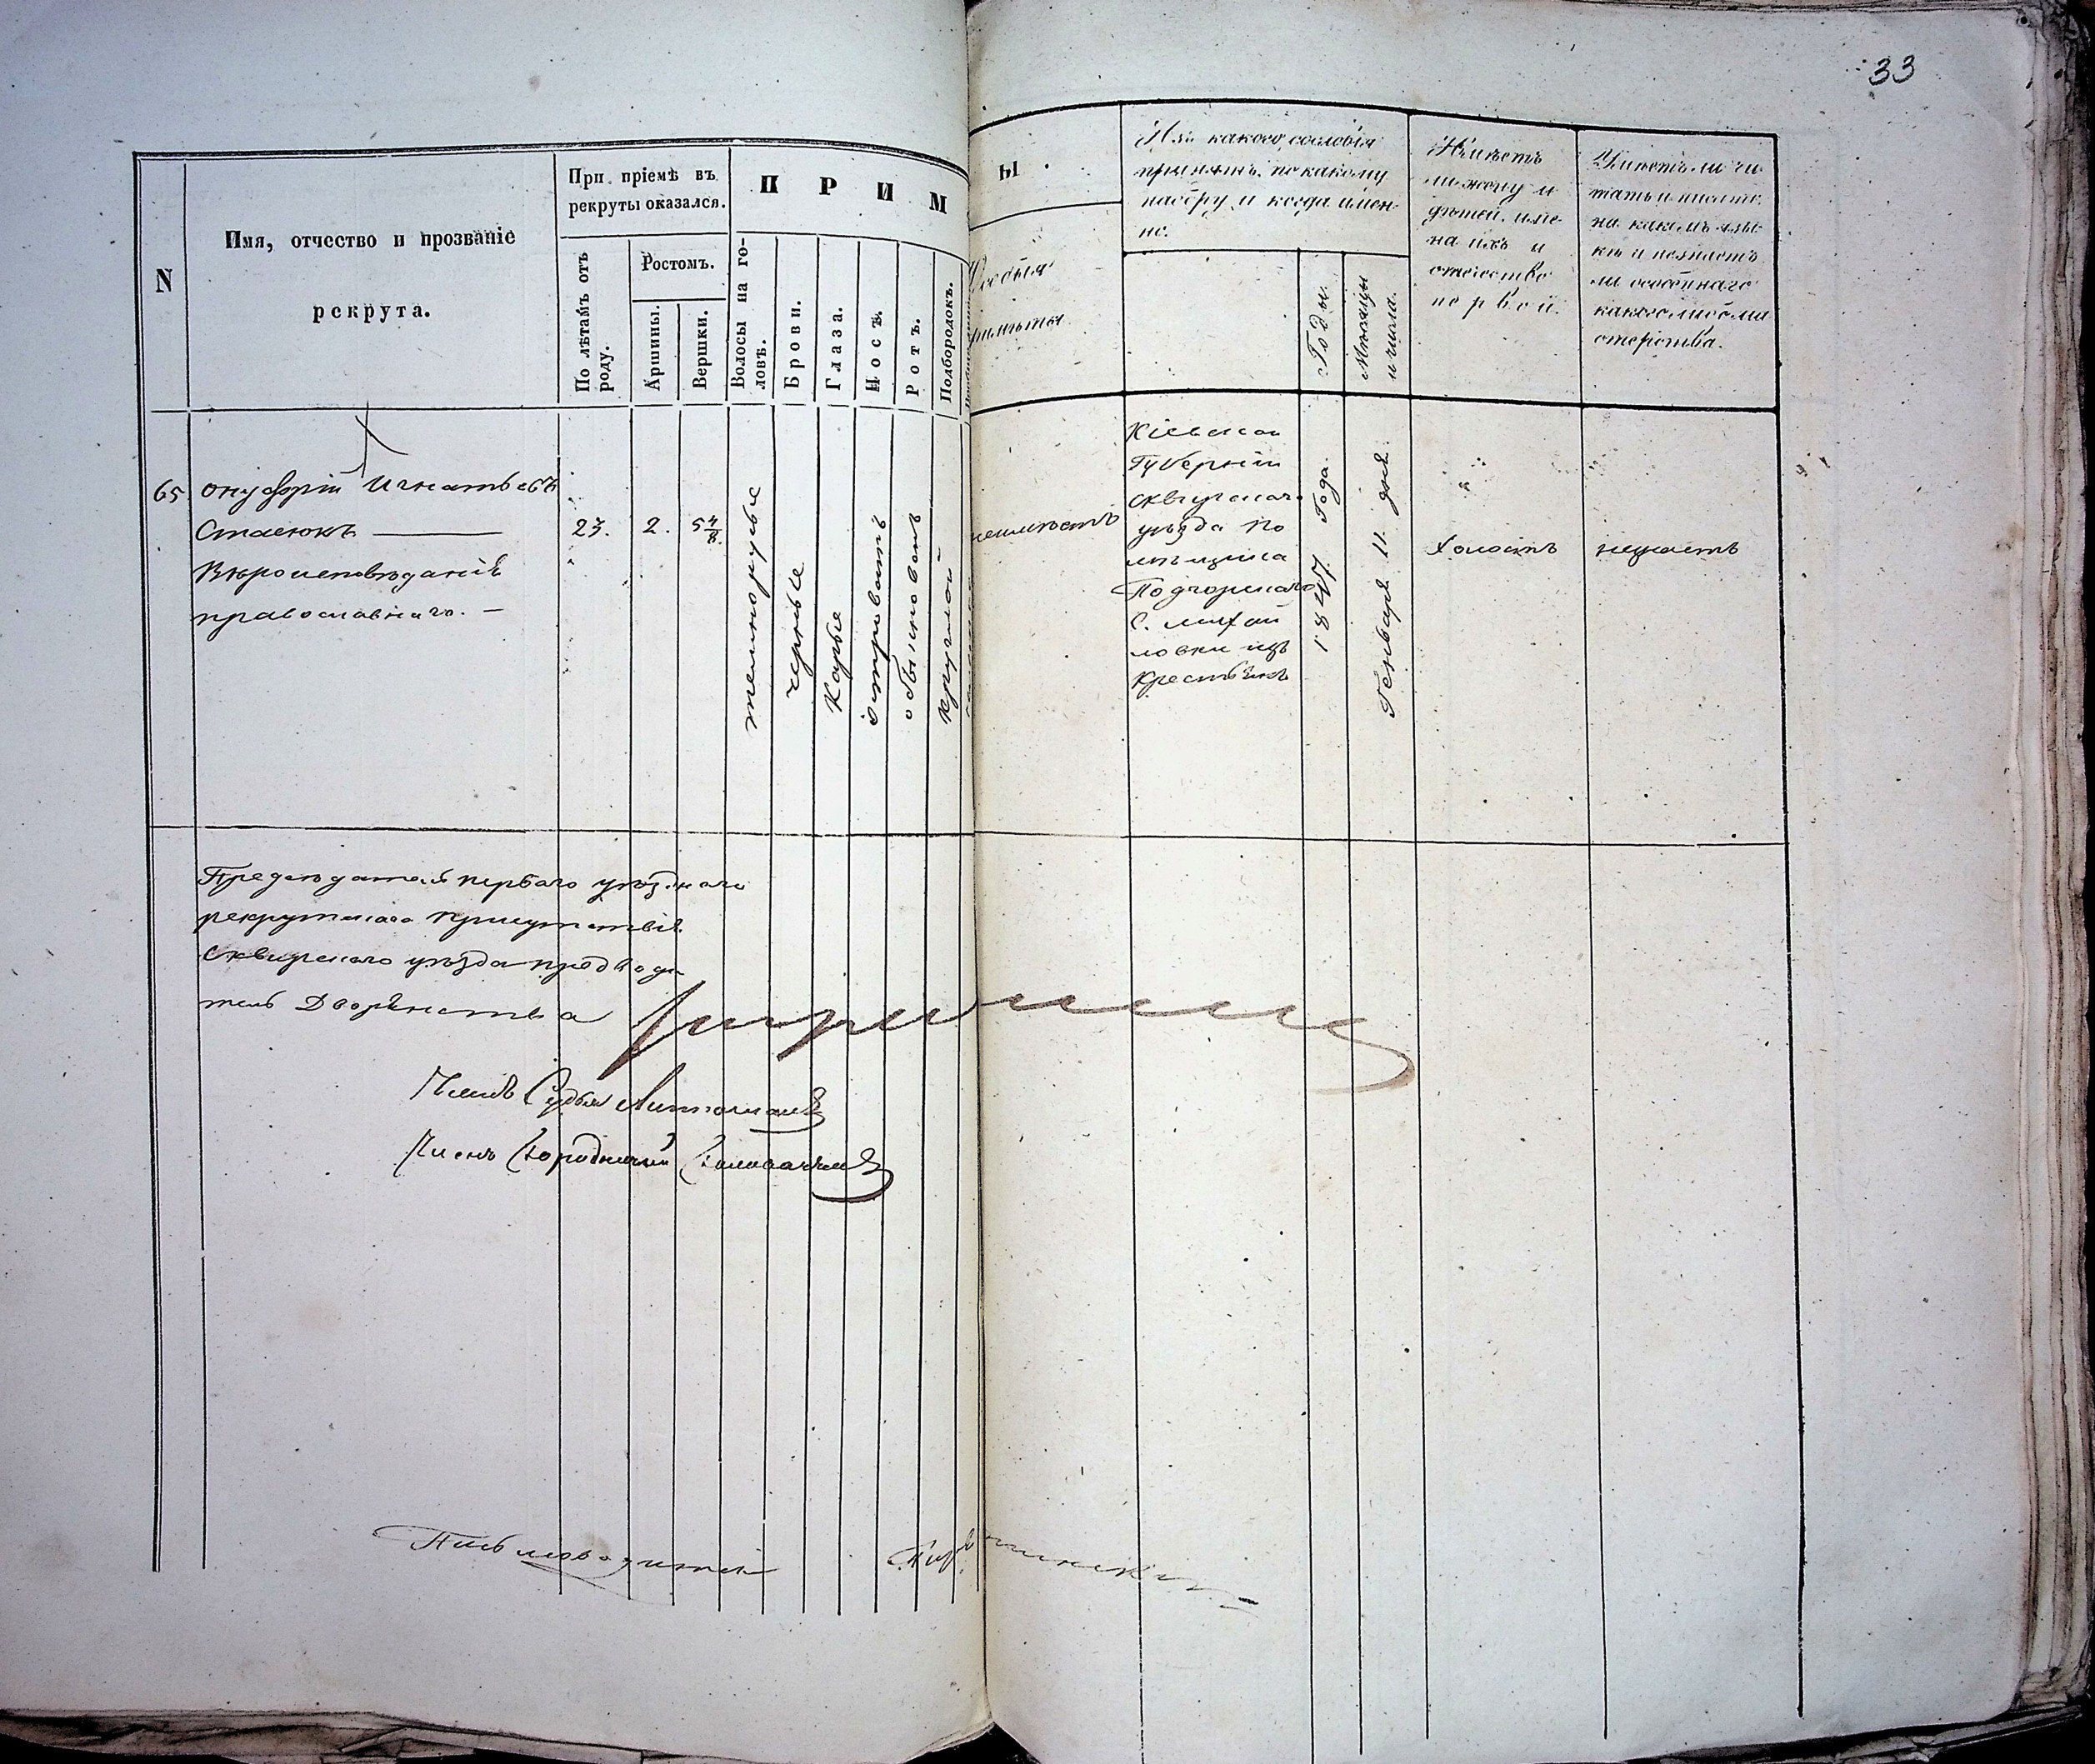 33
N
Имя, отчество и прозваніе
рекрута.
При пріемѣ въ
рекруты оказался.
По лѣтамъ отъ
роду.
Ростомъ.
Аршины.
Вершки.
П Р И М
Волосы на го-
ловѣ.
Брови.
Глаза.
Носъ.
Ротъ.
Подбородокъ.
Ы.
Особыя
Изъ какого сословія
принятъ, по какому
набору и когда имен-
но.
Годы.
Мѣсяцы
и числа.
Имѣетъ
ли жену и
дѣтей, име-
на ихъ и
отечество
первой.
Умѣетъ ли чи-
тать и писать,
на какомъ язы-
кѣ и не знаетъ
ли особеннаго
какого либо ма-
стерства.
65
Онуфрій Игнатьевъ
Стасюкъ
Вѣроисповѣданія
православнаго.
23.
2.
5 4/8
темнорусые
черные
Карые
островатъ
обыкновенъ
круглой
неимѣетъ
Кіевской
Губерніи
Сквирскаго
уѣзда по
мѣщика
Подгорскаго
С. Михай
ловки изъ
Крестьянъ
1847 Года.
Генваря 11. дня.
Холостъ
незнаетъ
Предсѣдатель перваго уѣзднаго
рекрутскаго присутствія
Сквирскаго уѣзда предводи
тель Дворянства
Членъ Судья
Членъ Городничій
Письмоводитель